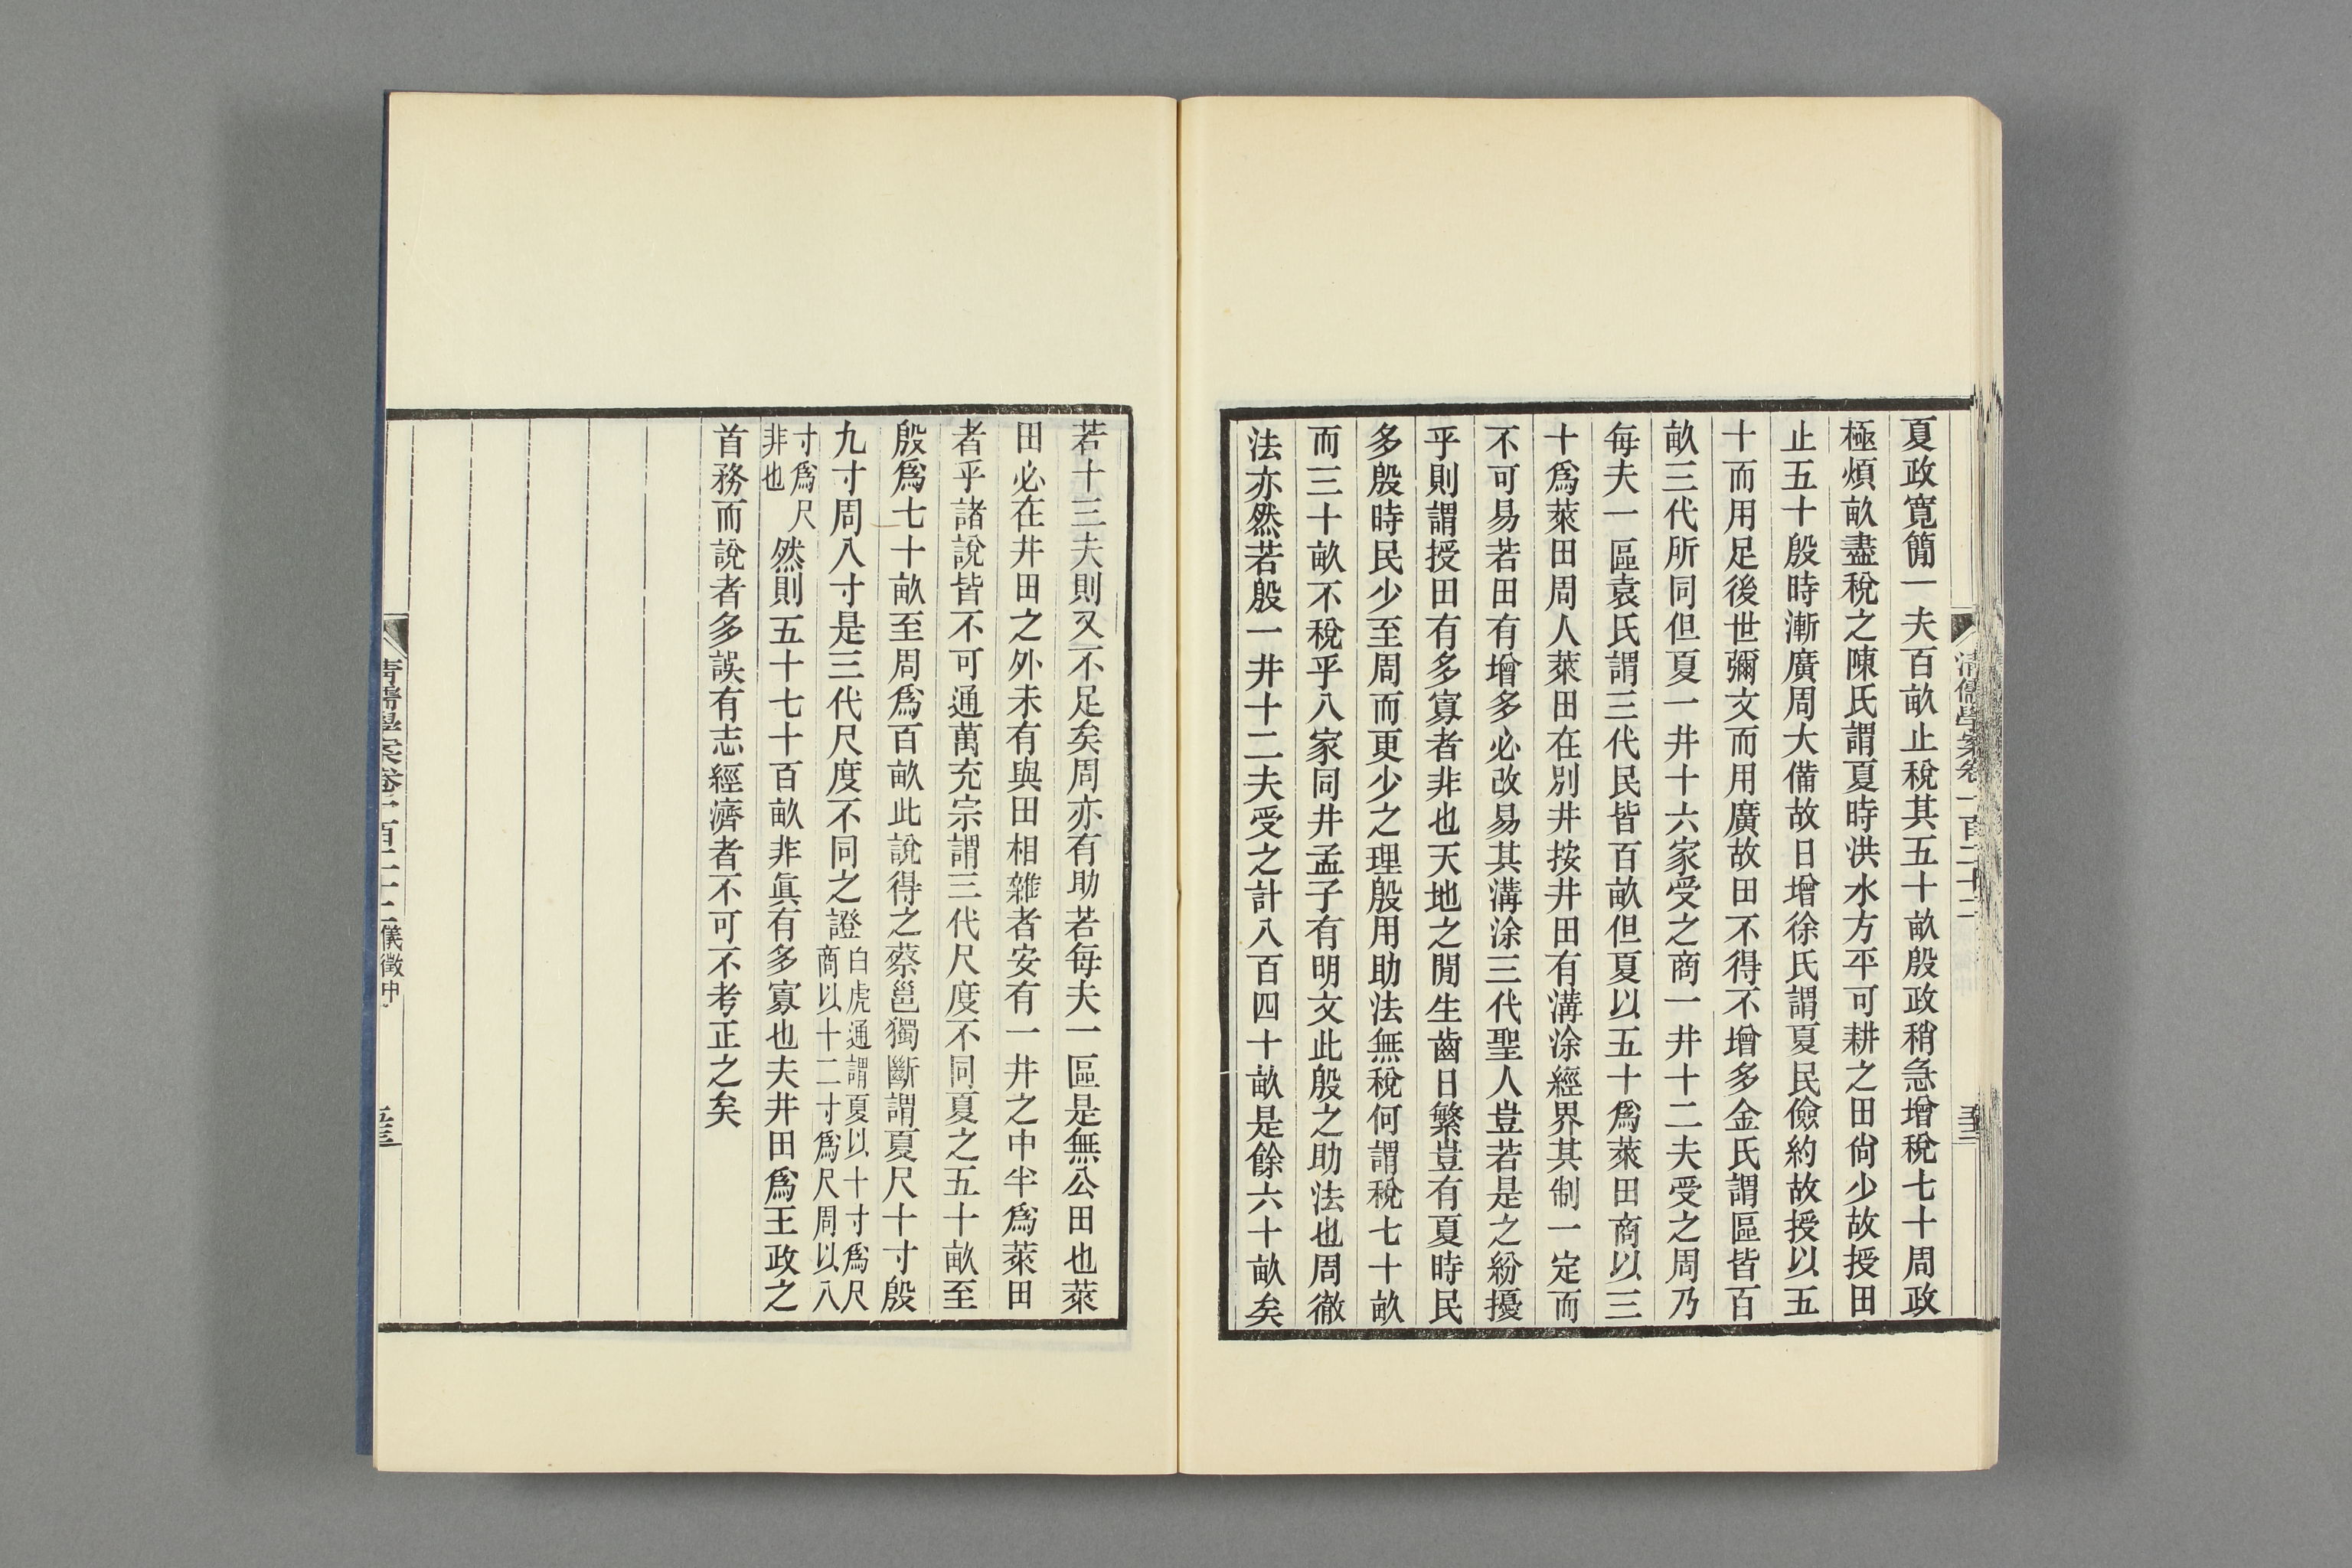 夏政寬簡一夫百畝止稅其五十畝殷政稍急增稅七十周政
極煩畝盡稅之陳氏謂夏時洪水方平可耕之田尙少故授田
止五十殷時漸廣周大備故日增徐氏謂夏民儉約故授以五
十而用足後世彌文而用廣故田不得不增多金氏謂區皆百
畝三代所同但夏一井十六家受之商一井十二夫受之周乃
每夫一區袁氏謂三代民皆百畝但夏以五十爲萊田商以三
十爲萊田周人萊田在別井按井田有溝涂經界其制一定而
不可易若田有增多必改易其溝涂三代聖人豈若是之紛擾
乎則謂授田有多寡者非也天地之閒生齒日繁豈有夏時民
多殷時民少至周而更少之理殷用助法無稅何謂稅七十畝
而三十畝不稅乎八家同井孟子有明文此殷之助法也周徹
法亦然若殷一井十二夫受之計八百四十畝是餘六十畝矣
若十三夫則又不足矣周亦有助若每夫一區是無公田也萊
田必在井田之外未有與田相雜者安有一井之中半爲萊田
者乎諸說皆不可通萬充宗謂三代尺度不同夏之五十畝至
殷爲七十畝至周爲百畝此說得之蔡邕獨斷謂夏尺十寸殷
九寸周八寸是三代尺度不同之證白虎通謂夏以十寸爲尺
商以十二寸爲尺周以八
寸爲尺
非也
然則五十七十百畝非眞有多寡也夫井田爲王政之
首務而說者多誤有志經濟者不可不考正之矣
清儒學案卷一百二十二儀徵中